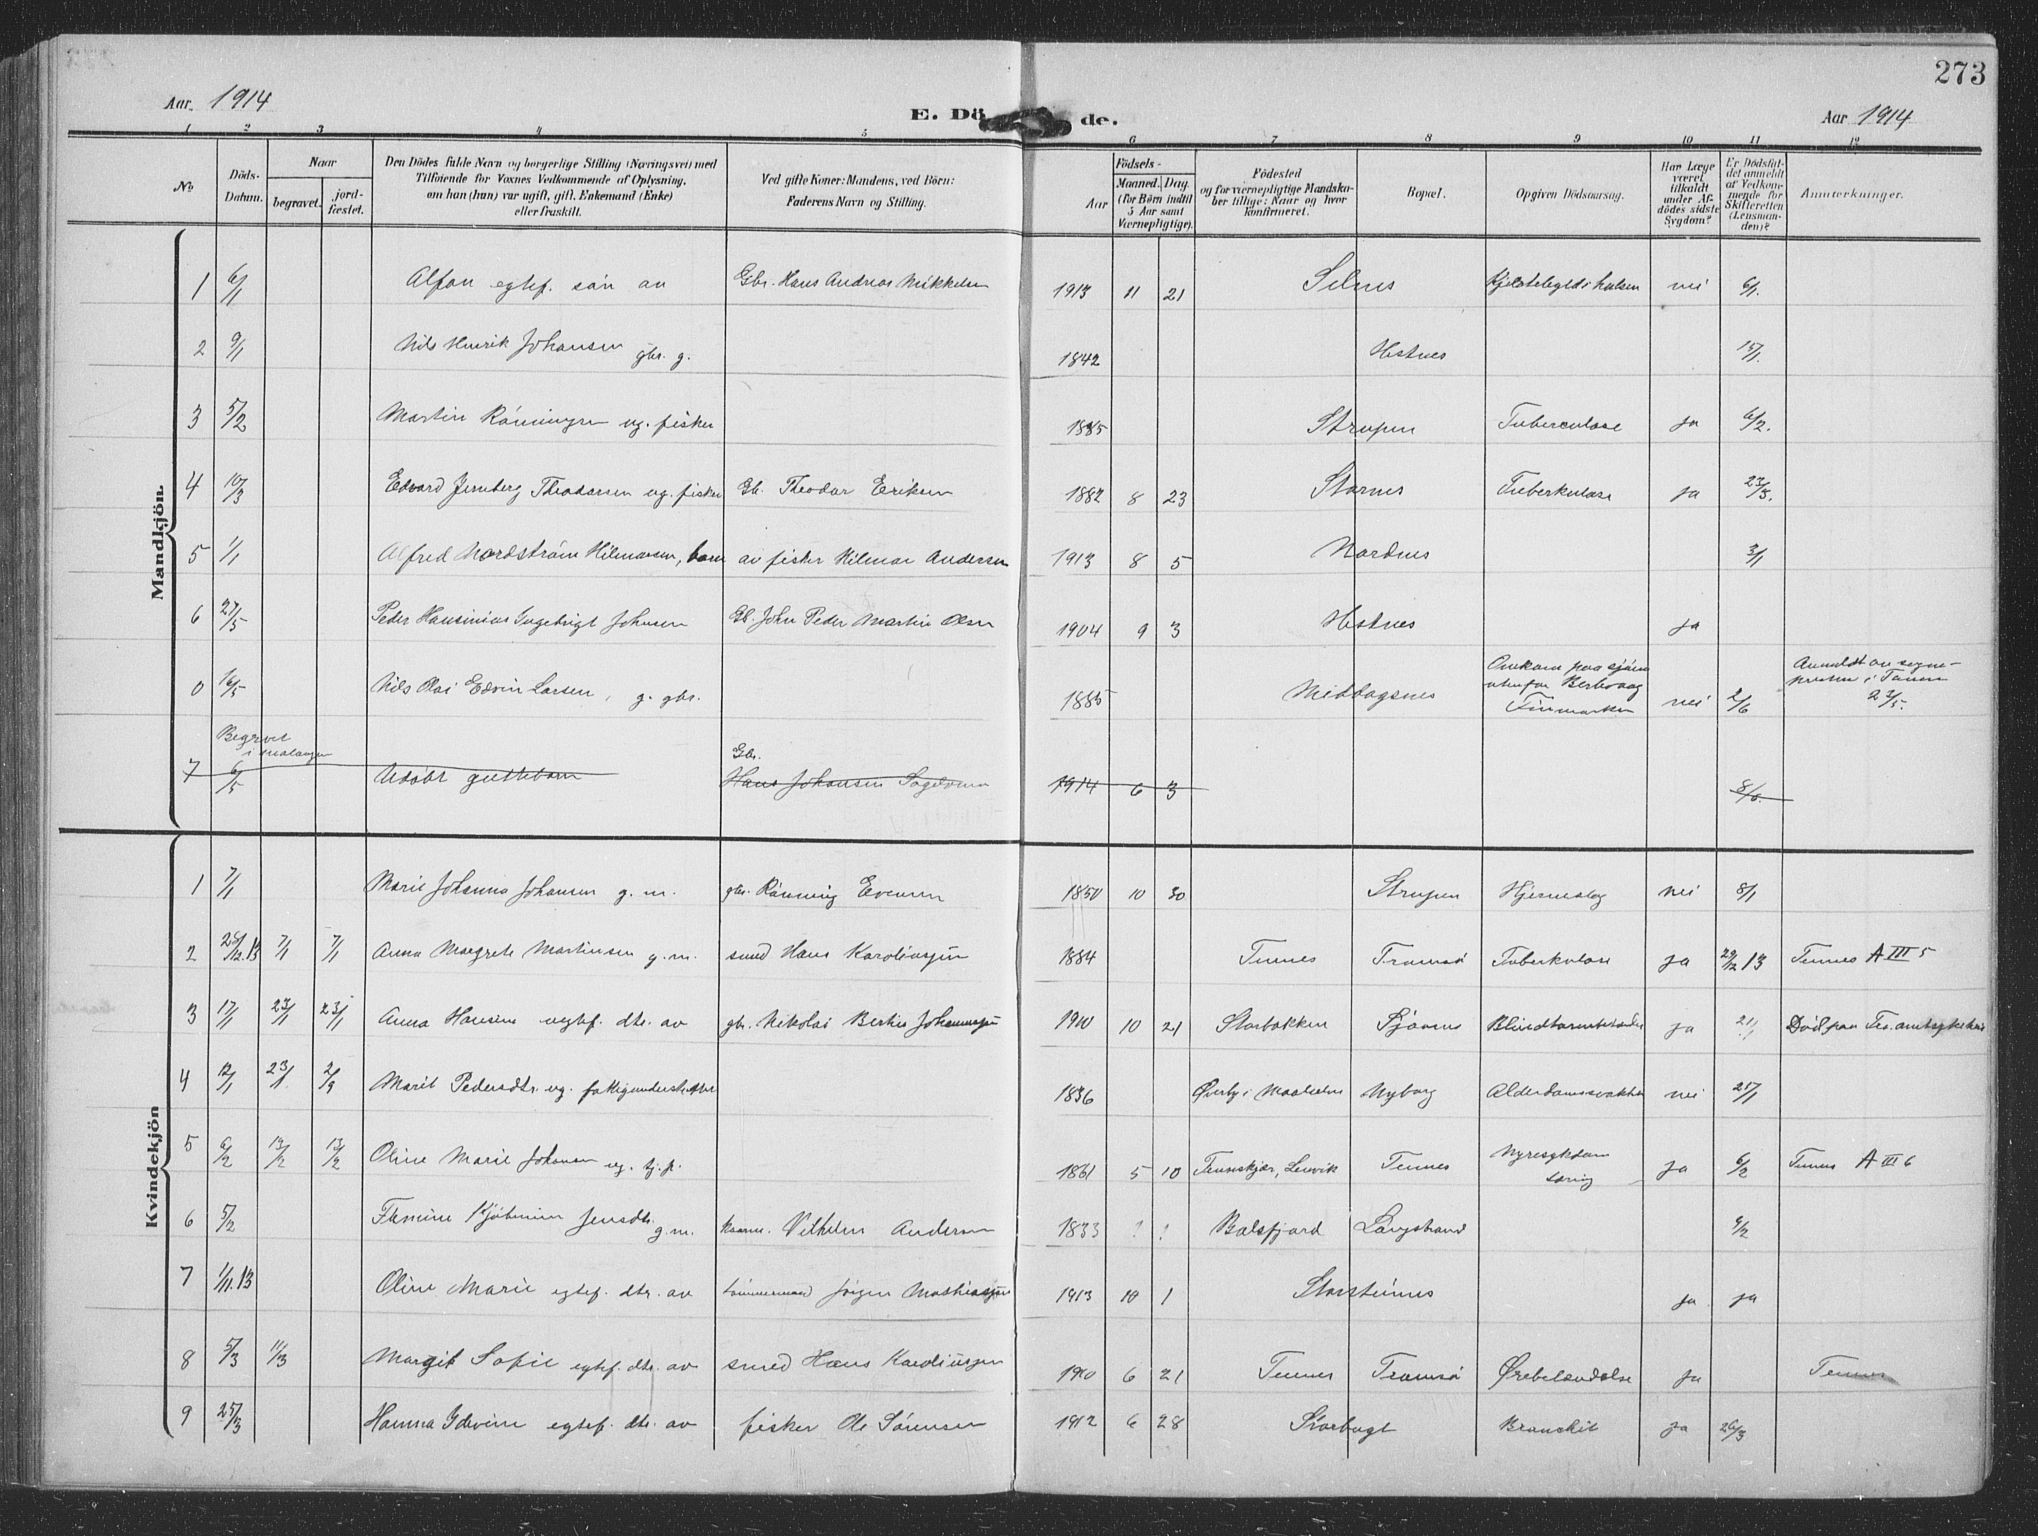 273
Aar 1914
E. Dö de.
Aar 1914
1 2 3 4 5 6 7 8 9 10 11 12
No
Döds-Datum.
Naar
begravet.
jord-fæstet.
Den Dödes fulde Navn og borgerlige Stilling (Næringsvei) med
Tilföiende for Voxnes Vedkommende af Oplysning,
om han (hun) var ugift, gift, Enkemand (Enke)
eller fraskilt.
Ved gifte Koner: Mandens, ved Börn:
Faderens Navn og Stilling.
Födsels-
Aar
Maaned. Dag.
(for Börn indtil
5 Aar samt
Værnepligtige).
Födested
og for værnepligtige Mandska-
ber tillige: Naar og hvor
konfirmeret.
Bopæl.
Opgiven Dödsaarsag.
Har Læge
været
tilkaldt
under Af-
dödes sidste
Sygdom?
Er Dödsfal-
det anmeldt
af Vedkom-
mende for
Skifteretten
(Lensman-
den)?
Anmerkninger.
Mandkjön.
1 6/1 egtef. sön av Gbr. Hans Andreas Mikkelsen 1913 11 21 Selnes nei 6/1.
2 9/1 Nils Henrik Johansen gbr. g. 1842 Hestnes 15/1.
3 5/2 Martin Rönningen ug. fisker 1885 Strupen Tuberculose ja 6/2.
4 10/3 Edvard Jernberg Theodorsen ug. fisker Gb. Theodor Eriksen 1882 8 23 Stornes Tuberkulose ja 23/3.
5 1/1 Alfred Nordström Hilmarsen, barn av fisker Hilmar Andersen 1913 8 5 Nordnes 3/1
6 27/5 Peder Hansinius Ingebrigt Johnsen Gb. John Peder Martin Olsen 1904 9 3 Hestnes ja
0 16/5 Nils Olai Edvin Larsen, g. gbr. 1885 Middagsnes Omkom paa sjöen
utenfor Berlevaag
Finmarken nei 2/6 Anmeldt av sogne-
presten i Tanen
23/5.
Begravet
i Malangen
7 6/5 Udöbt guttebarn Gbr.
Hans Johansen 1914 6 3 8/6.
Kvindekjön
1 7/1 Marie Johanna Johansen g. m. gbr. Rönning Evensen 1850 10 30 Strupen Hjerneslag nei 8/1
2 28/12.13 7/1 7/1 Anna Margrete Martinsen g. m. smed Hans Karoliussen 1884 Tennes Tromsö Tuberkulose ja 29/12 13 Tennes A III 5
3 17/1 23/1 23/1 Anna Hansine egtef. dtr. av gbr. Nikolai Bertin Johannessen 1910 10 21 Storbakken Sjövnes ja 21/1 Död paa Tr. amtssykehus
4 12/1 23/1. 2/9 Marit Pedersdtr. ug. fattigunderstöttet 1836 Øverby i Maalselven Nyborg Alderdomssvakhet nei 21/1
5 6/2 13/2 13/2 Oline Marie Johansen ug. tj. p. 1861 5 10 Tennskjær, Lenvik Tennes Nyresykdom
ja 6/2 Tennes A III 6
6 5/2 Jensdtr. g. m. Vilhelm Andersen 1833 ! ! Balsfjord Langstrand 9/2
7 1/11.13 Oline Marie egtef. dtr. av tömmermand Jörgen Mathiassen 1913 10 1 Storsteinnes ja ja
8 5/3 11/3 Margit Sofie egtef. dtr. av smed Hans Karoliussen 1910 6 21 Tennes Tromsö Ørebetændelse ja Tennes
9 25/3 Hanna Edvine egtef. dtr. av fisker Ole Sörensen 1912 6 28 Storbugt Bronchit ja 26/3